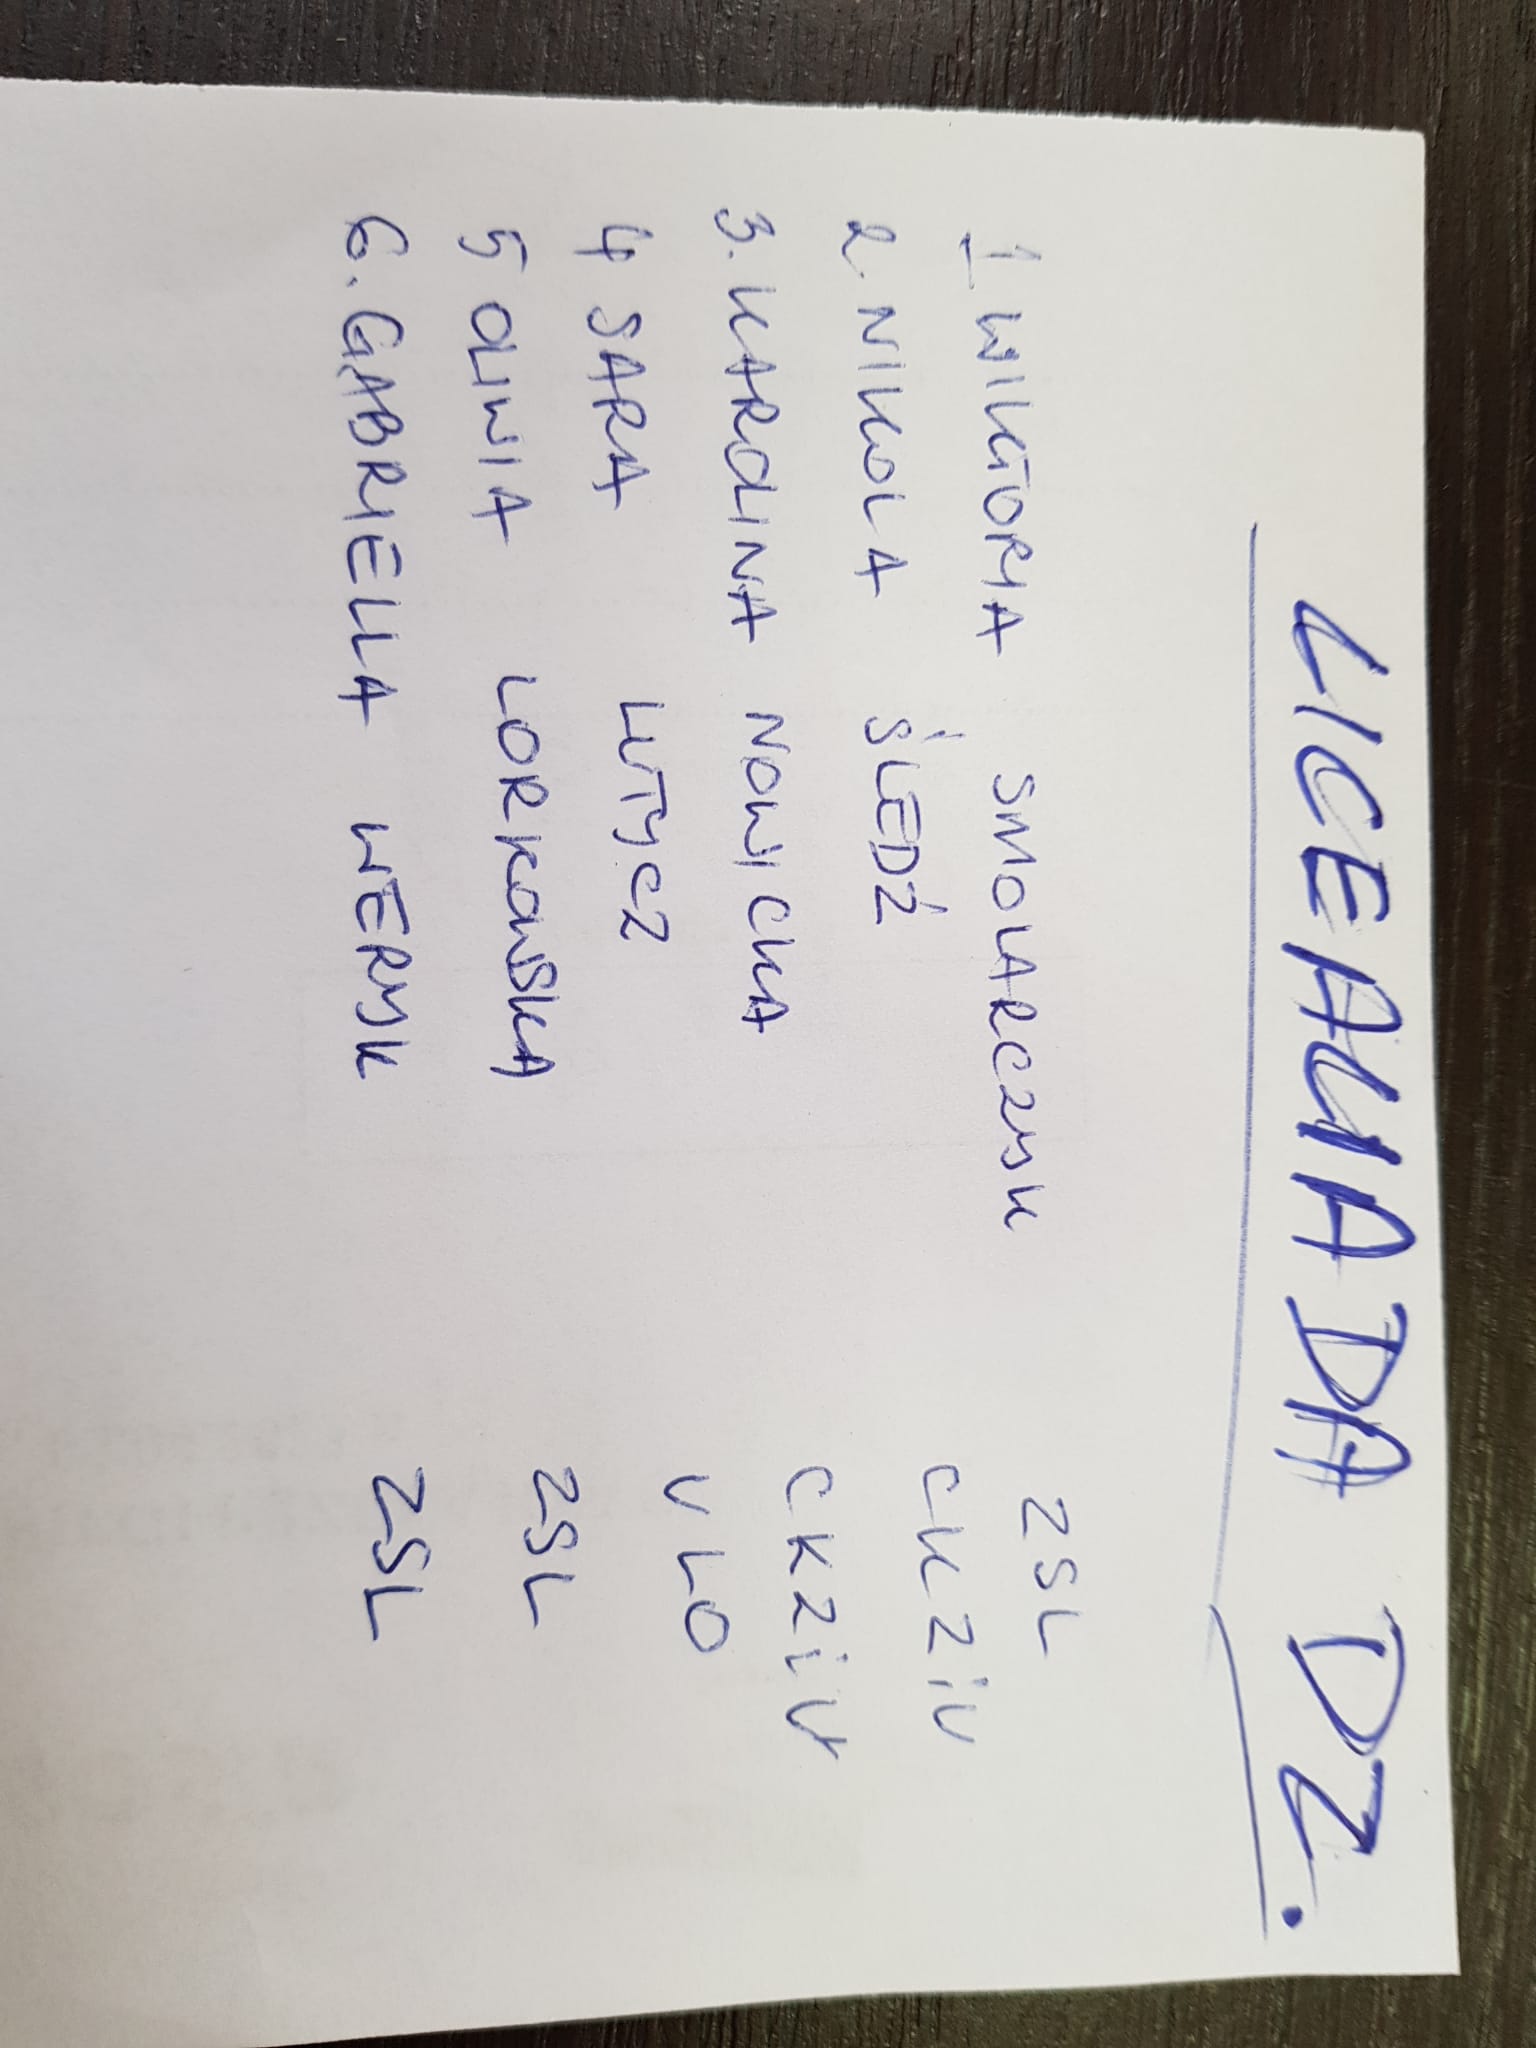 LICEALIADA DZ.
1 WIKTORIA SMOLARCZYK ZSL
2. NIKOLA ŚLEDŹ CKZiU
3. KAROLINA NOWICKA CKZiU
4 SARA LUTYCZ V LO
5 OLIWIA LORKOWSKA ZSL
6. GABRIELLA WERYK ZSL